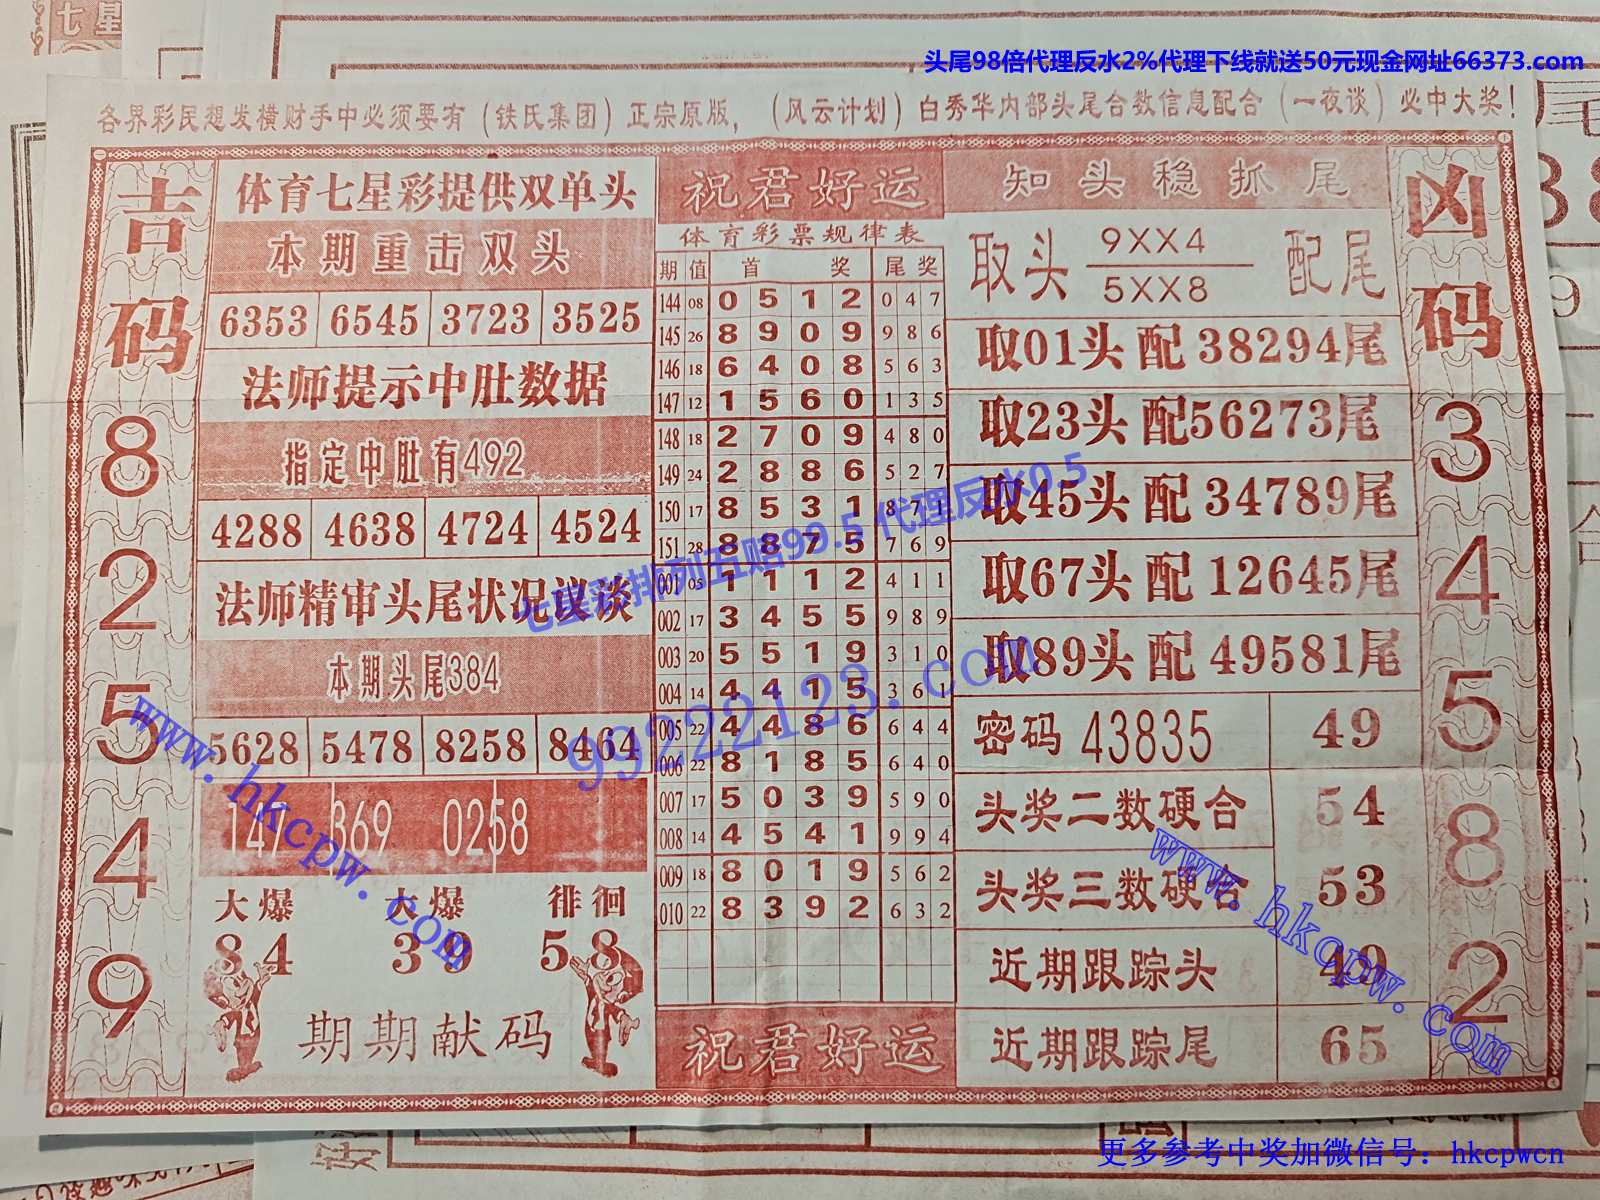 七星
头尾98倍代理反水2%代理下线就送50元现金网址66373.com
各界彩民想发横财手中必须要有（铁氏集团）正宗原版，（风云计划）白秀华内部头尾合数信息配合（一夜谈）必中大奖！
吉码
8
2
5
4
9
体育七星彩提供双单头
本期重击双头
6353 6545 3723 3525
法师提示中肚数据
指定中肚有492
4288 4638 4724 4524
法师精审头尾状况议谈
本期头尾384
5628 5478 8258 8464
147 369 0258
大爆 大爆 徘徊
84 39 58
期期献码
祝君好运
体育彩票规律表
期 值 首 奖 尾奖
144 08 0 5 1 2 0 4 7
145 26 8 9 0 9 9 8 6
146 18 6 4 0 8 5 6 3
147 12 1 5 6 0 1 3 5
148 18 2 7 0 9 4 8 0
149 24 2 8 8 6 5 2 7
150 17 8 5 3 1 8 7 1
151 28 8 8 7 5 7 6 9
001 05 1 1 1 2 4 1 1
002 17 3 4 5 5 9 8 9
003 20 5 5 1 9 3 1 0
004 14 4 4 1 5 3 6 1
005 22 4 4 8 6 6 4 4
006 22 8 1 8 5 6 4 0
007 17 5 0 3 9 5 9 0
008 14 4 5 4 1 9 9 4
009 18 8 0 1 9 5 6 2
010 22 8 3 9 2 6 3 2
祝君好运
知头稳抓尾
取头 9XX4 配尾
5XX8
取01头配38294尾
取23头配56273尾
取45头配34789尾
取67头配12645尾
取89头配49581尾
密码 43835 49
头奖二数硬合 54
头奖三数硬合 53
近期跟踪头 49
近期跟踪尾 65
凶码
3
4
5
8
2
七星彩排列五赔99.5 代理反水0.5
99222123.com
www.hkcpw.com
www.hkcpw.com
更多参考中奖加微信号：hkcpwcn